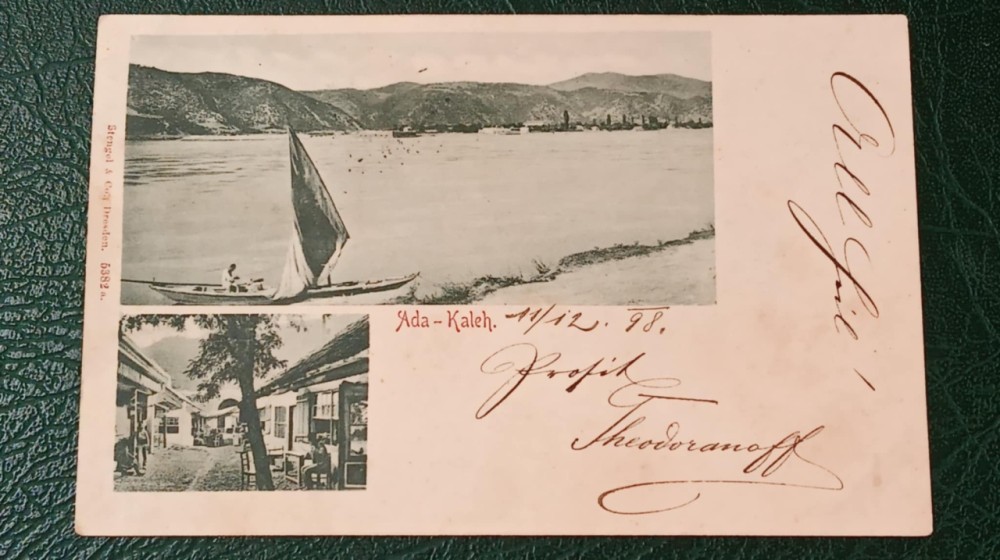 Stengel & Co., Dresden. 5382 a.
Ada-Kaleh.
11/12. 98.
Prosit
Theodoranoff